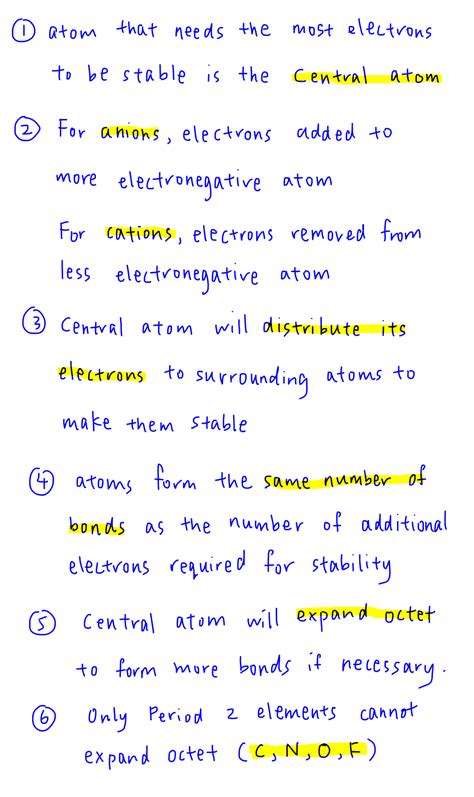 ① atom that needs the most electrons
to be stable is the central atom
② For anions, electrons added to
more electronegative atom
For cations, electrons removed from
less electronegative atom
③ Central atom will distribute its
electrons to surrounding atoms to
make them stable
④ atoms form the same number of
bonds as the number of additional
electrons required for stability
⑤ Central atom will expand octet
to form more bonds if necessary.
⑥ Only Period 2 elements cannot
expand octet (C, N, O, F)